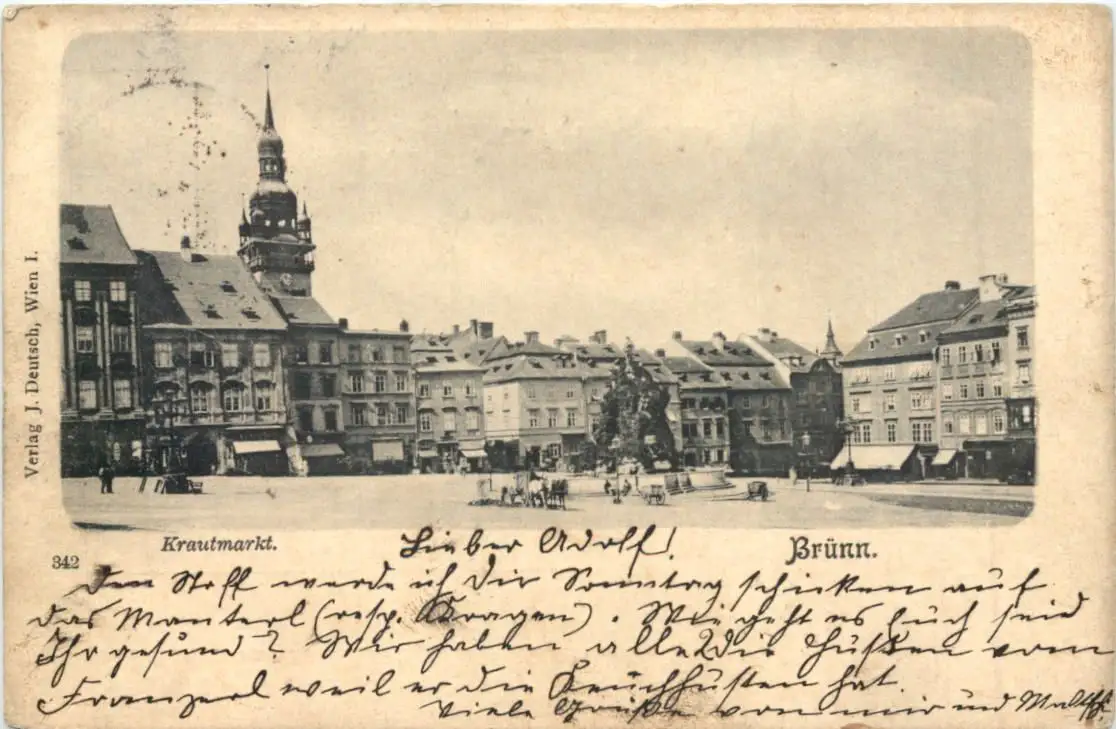 Verlag J. Deutsch, Wien I.
Krautmarkt.
Brünn.
342
Lieber Adolf!
Den Stoff werde ich dir Sonntag schicken auf
das Manterl (resp. Kragen). Wie geht es Euch seid
Ihr gesund? Wir haben alle die Husten vom
Franzerl weil er die Keuchhusten hat.
Viele Grüße von mir und